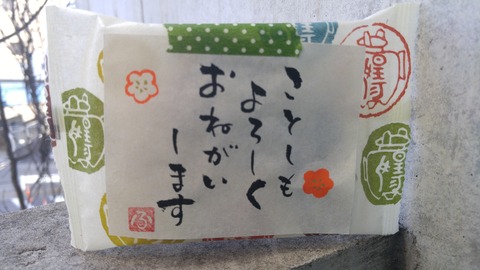 ことしも
よろしく
おねがい
します